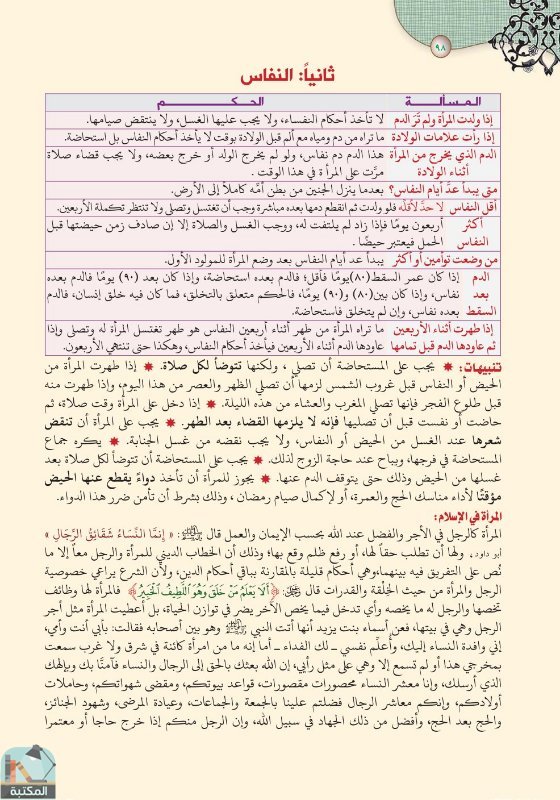 ٩٨
ثانياً: النفاس
المـسـألـــــة الحـكـــــم
إذا ولدت المرأة ولم تَرَ الدم لا تأخذ أحكام النفساء، ولا يجب عليها الغسل، ولا ينتقض صيامها.
إذا رأت علامات الولادة ما تراه من دم ومياه مع ألم قبل الولادة بوقت لا يأخذ أحكام النفاس بل استحاضة.
الدم الذي يخرج من المرأة هذا الدم دم نفاس، ولو لم يخرج الولد أو خرج بعضه، ولا يجب قضاء صلاة
أثناء الولادة مرَّت على المرأة في هذا الوقت.
متى يبدأ عدُّ أيام النفاس؟ بعدما ينزل الجنين من بطن أمِّه كاملاً إلى الأرض.
أقل النفاس لا حدَّ لأقله فلو ولدت ثم انقطع دمها بعده مباشرة وجب أن تغتسل وتصلي ولا تنتظر تكملة الأربعين.
أكثر أربعون يومًا فإذا زاد لم يلتفت له، ووجب الغسل والصلاة إلا إن صادف زمن حيضتها قبل
النفاس الحمل فيعتبر حيضًا.
من وضعت توأمين أو أكثر يبدأ عد أيام النفاس بعد وضع المرأة للمولود الأول.
الدم إذا كان عمر السقط(٨٠)يومًا فأقل؛ فالدم بعده استحاضة، وإذا كان بعد (٩٠) يومًا فالدم بعده
بعد نفاس، وإذا كان بين(٨٠) و(٩٠) يومًا، فالحكم متعلق بالتخلق، فما كان فيه خلق إنسان، فالدم
السقط بعده نفاس، وإن لم يتخلق فاستحاضة.
إذا طهرت أثناء الأربعين ما تراه المرأة من طهر أثناء أربعين النفاس هو طهر تغتسل المرأة له وتصلي وإذا
ثم عاودها الدم قبل تمامها عاودها الدم أثناء الأربعين فيأخذ أحكام النفاس، وهكذا حتى تنتهي الأربعون.
تنبيهات: ✹ يجب على المستحاضة أن تصلي ، ولكنها تتوضأ لكل صلاة. ✹ إذا طهرت المرأة من
الحيض أو النفاس قبل غروب الشمس لزمها أن تصلي الظهر والعصر من هذا اليوم، وإذا طهرت منه
قبل طلوع الفجر فإنها تصلي المغرب والعشاء من هذه الليلة. ✹ إذا دخل على المرأة وقت صلاة، ثم
حاضت أو نفست قبل أن تصليها فإنه لا يلزمها القضاء بعد الطهر. ✹ يجب على المرأة أن تنقض
شعرها عند الغسل من الحيض أو النفاس، ولا يجب نقضه من غسل الجنابة. ✹ يكره جماع
المستحاضة في فرجها، ويباح عند حاجة الزوج لذلك. ✹ يجب على المستحاضة أن تتوضأ لكل صلاة بعد
غسلها من الحيض وذلك حتى يتوقف الدم عنها. ✹ يجوز للمرأة أن تأخذ دواءً يقطع عنها الحيض
مؤقتًا لأداء مناسك الحج والعمرة، أو لإكمال صيام رمضان ، وذلك بشرط أن تأمن ضرر هذا الدواء.
المرأة في الإسلام:
المرأة كالرجل في الأجر والفضل عند الله بحسب الإيمان والعمل قال ﷺ: « إِنَّمَا النِّسَاءُ شَقَائِقُ الرِّجَالِ »
أبو داود، ولها أن تطلب حقاً لها، أو رفع ظلم وقع بها؛ وذلك أن الخطاب الديني للمرأة والرجل معاً إلا ما
نُص على التفريق فيه بينهما،وهي أحكام قليلة بالمقارنة بباقي أحكام الدين، ولأن الشرع يراعي خصوصية
الرجل والمرأة من حيث الخِلْقة والقدرات قال ﷻ: ﴿أَلَا يَعْلَمُ مَنْ خَلَقَ وَهُوَ اللَّطِيفُ الْخَبِيرُ﴾ فالمرأة لها وظائف
تخصها والرجل له ما يخصه وأي تدخل فيما يخص الآخر يضر في توازن الحياة، بل أعطيت المرأة مثل أجر
الرجل وهي في بيتها، فعن أسماء بنت يزيد أنها أتت النبي ﷺ وهو بين أصحابه فقالت: بأبي أنت وأمي،
إني وافدة النساء إليك، وأعلم نفسي ـ لك الفداء ـ أما إنه ما من امرأة كائنة في شرق ولا غرب سمعت
بمخرجي هذا أو لم تسمع إلا وهي على مثل رأيي، إن الله بعثك بالحق إلى الرجال والنساء فآمنَّا بك وبإلهك
الذي أرسلك، وإنا معشر النساء محصورات مقصورات، قواعد بيوتكم، ومقضى شهواتكم، وحاملات
أولادكم، وإنكم معاشر الرجال فضلتم علينا بالجمعة والجماعات، وعيادة المرضى، وشهود الجنائز،
والحج بعد الحج، وأفضل من ذلك الجهاد في سبيل الله، وإن الرجل منكم إذا خرج حاجا أو معتمرا
المكتبة